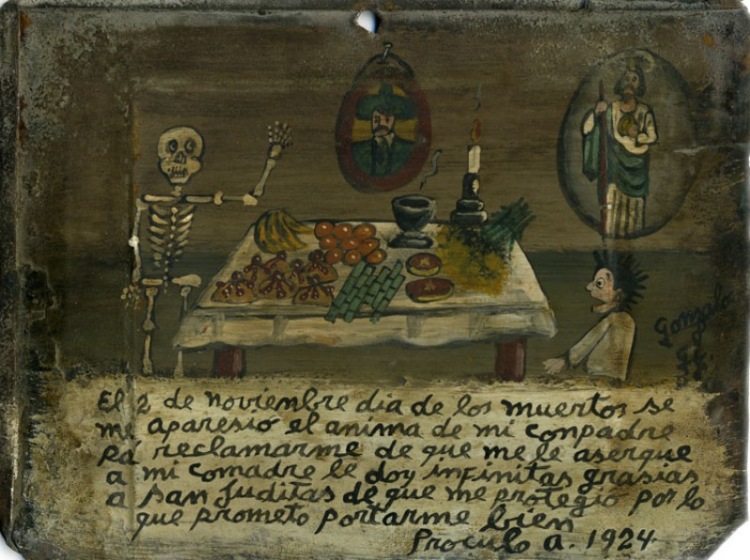 Gonzalo
El 2 de noviembre dia de los muertos se
me aparesio el anima de mi conpadre
pa reclamarme de que me le aserque
a mi comadre le doy infinitas grasias
a San Juditas de que me protegio por lo
que prometo portarme bien
Proculo a. 1924